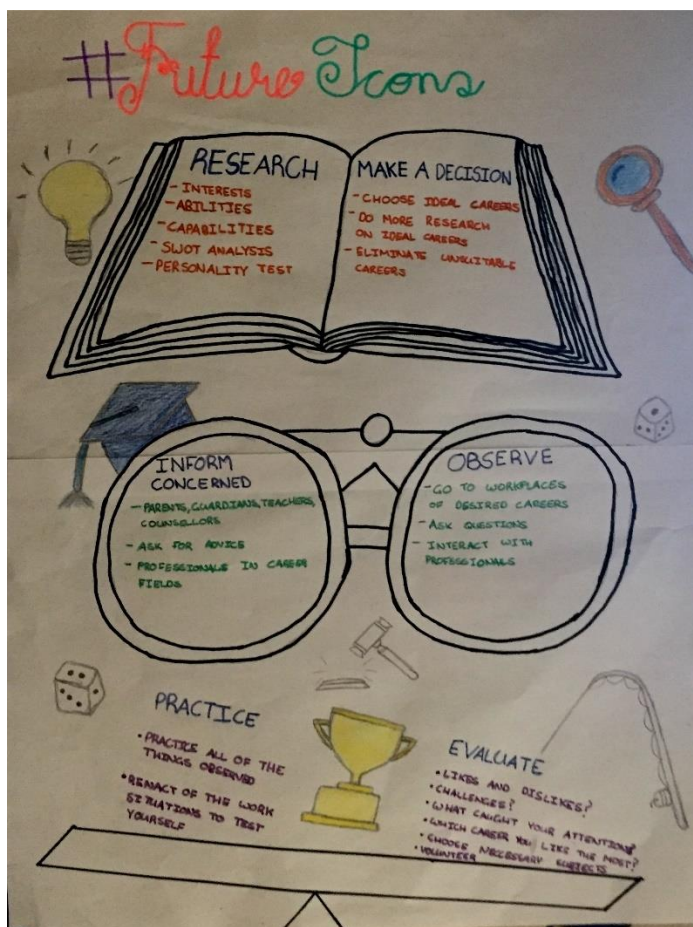 #Future Icons
RESEARCH
- INTERESTS
- ABILITIES
- CAPABILITIES
- SWOT ANALYSIS
- PERSONALITY TEST
MAKE A DECISION
- CHOOSE IDEAL CAREERS
- DO MORE RESEARCH
ON IDEAL CAREERS
- ELIMINATE UNSUITABLE
CAREERS
INFORM
CONCERNED
- PARENTS, GUARDIANS, TEACHERS,
COUNSELLORS
- ASK FOR ADVICE
- PROFESSIONALS IN CAREER
FIELDS
OBSERVE
- GO TO WORKPLACES
OF DESIRED CAREERS
- ASK QUESTIONS
- INTERACT WITH
PROFESSIONALS
PRACTICE
• PRACTICE ALL OF THE
THINGS OBSERVED
• REINACT OF THE WORK
SITUATIONS TO TEST
YOURSELF
EVALUATE
• LIKES AND DISLIKES?
• CHALLENGES?
• WHAT CAUGHT YOUR ATTENTION?
• WHICH CAREER YOU LIKE THE MOST?
• CHOOSE NECESSARY SUBJECTS
• VOLUNTEER